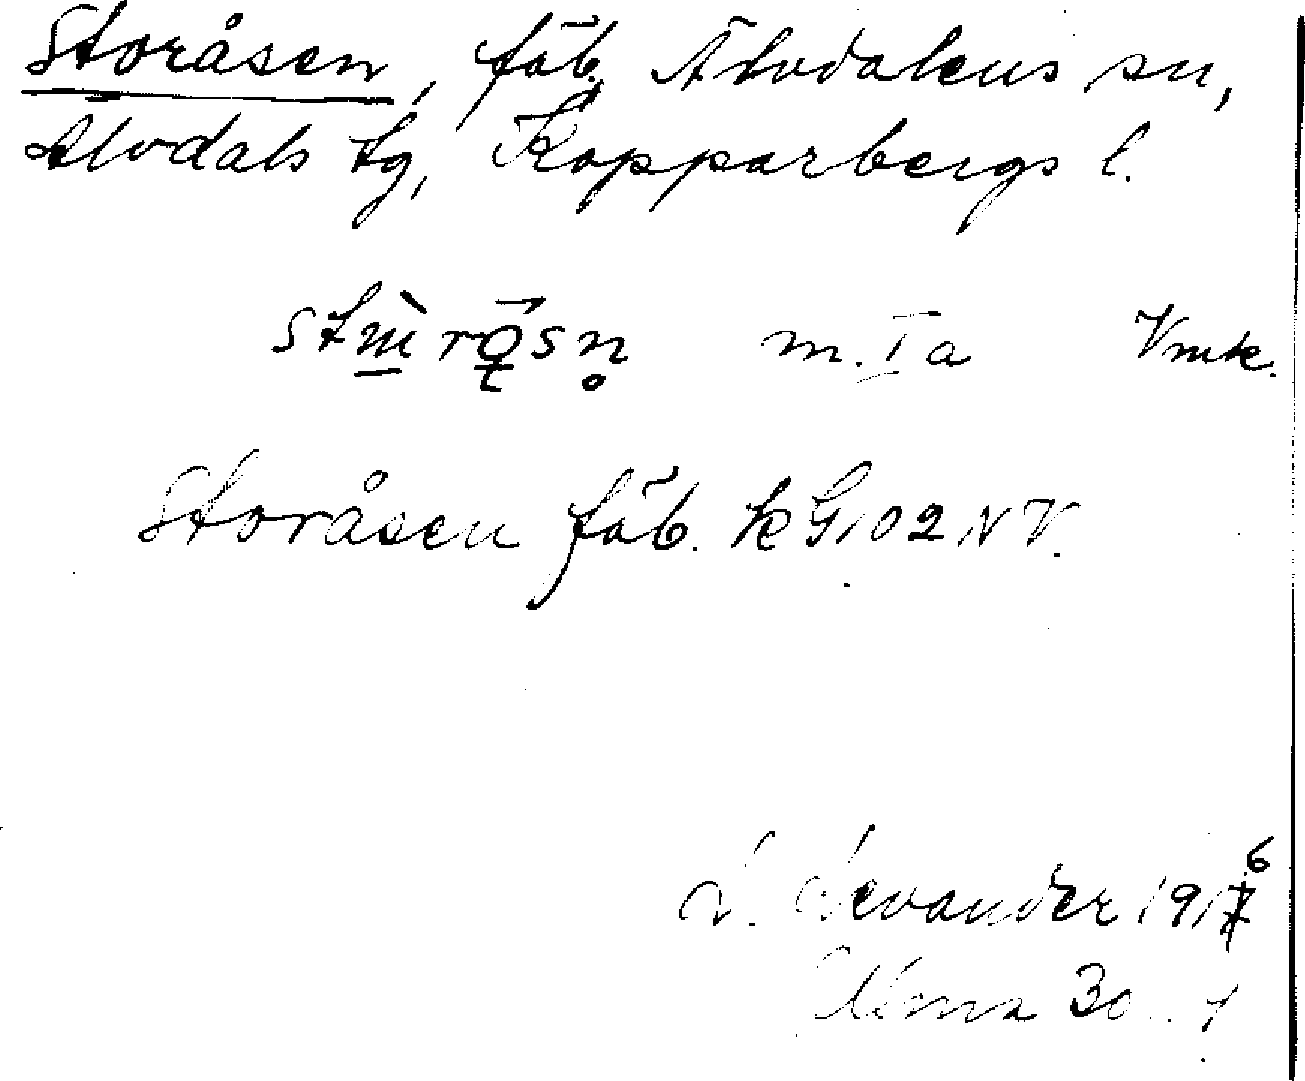 Storåsen, fäb. Älvdalens sn,
Älvdals tg, Kopparbergs l.
m. I a Vmk.
Storåsen fäb. k G 102 NV.
L. Levander 1916
Utm 30